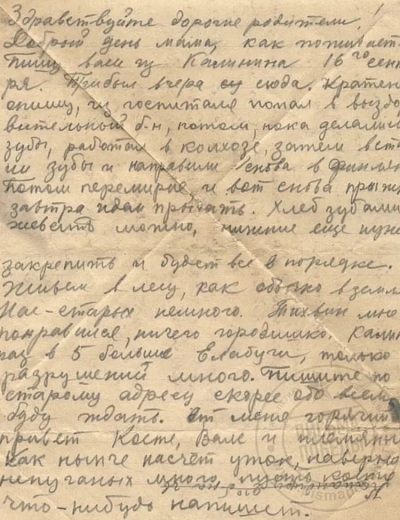 1
Здравствуйте дорогие родители.
Добрый день мама, как поживает
Пишу вам из Калинина 16го сен
ря. Прибыл вчера сюда. Кратен
опишу, из госпиталя попал в выздо
вительный б-н, потом, пока делались
зубы, работал в колхозе, затем вст
или зубы и направили снова в Финлян
Потом перемирие, и вот снова прыж
завтра идем прыгать. Хлеб зубами
жевать можно, нижние еще нужн
закрепить и будет все в порядке.
Живем в лесу, как обычно в земл
Нас-старых немного. Тихвин мне
понравился, ничего городишко. Калин
раз в 5 больше Елабуги, только
разрушений много. Пишите по
старому адресу скорее обо всем
буду ждать. От меня горячий
привет Косте, Вале и племянн
Как нынче насчет уток, наверно
непуганых много, пусть Костя
что-нибудь напишет.